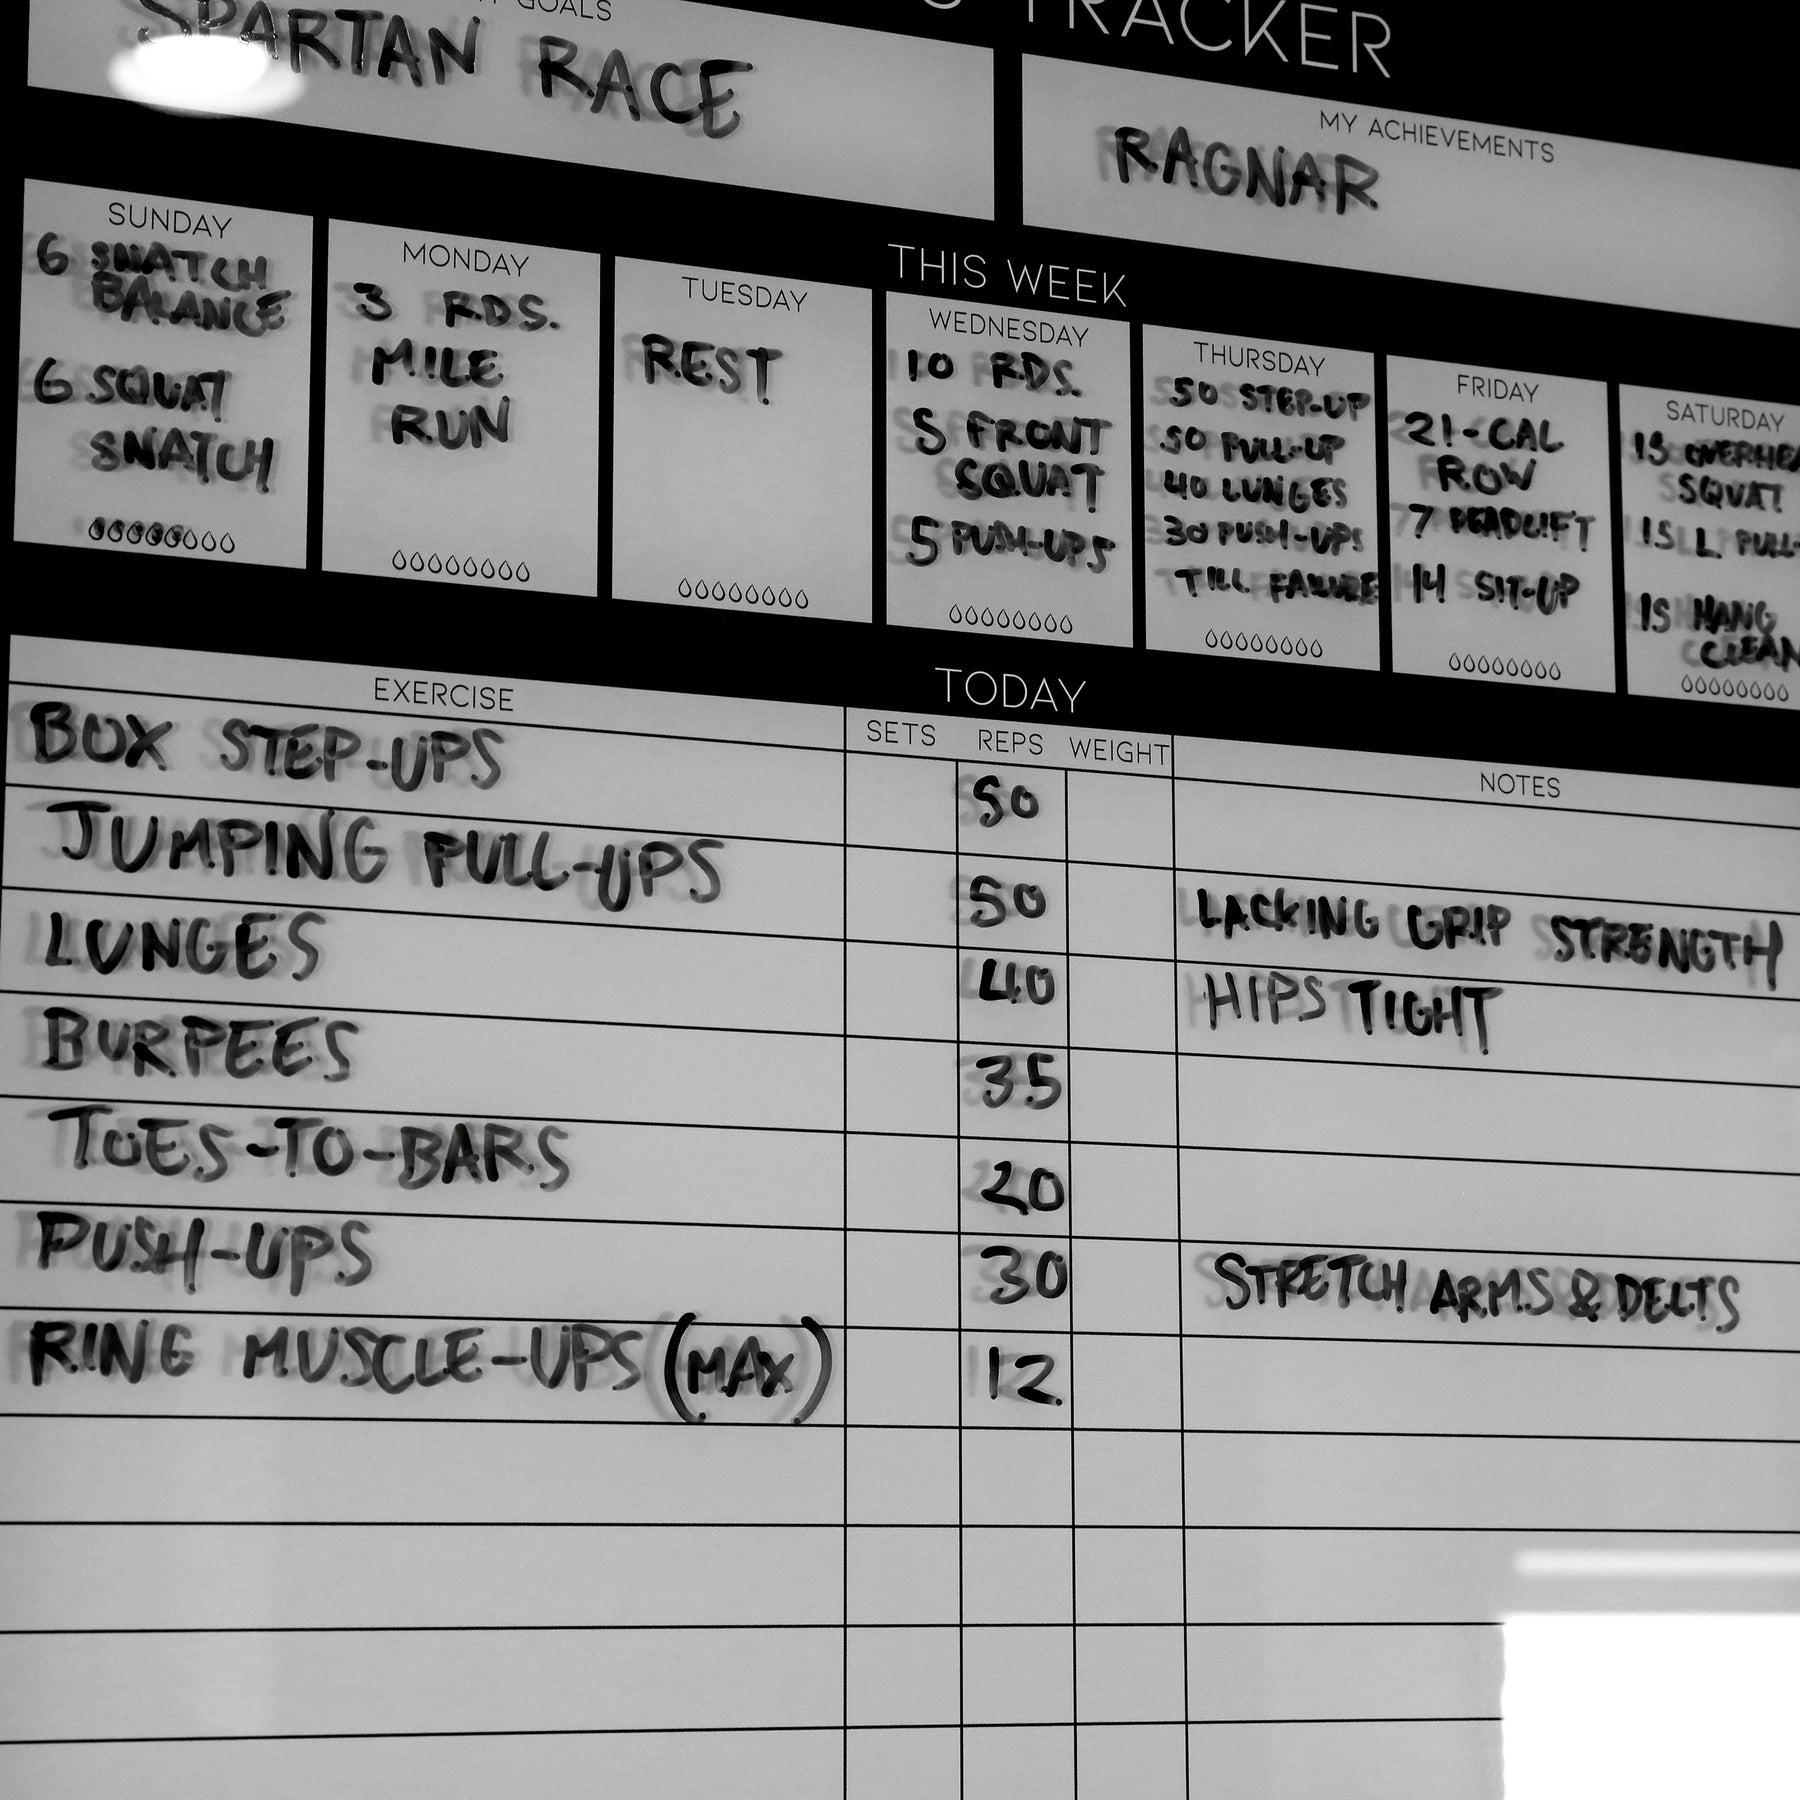 GOALS
TRACKER
SPARTAN RACE
MY ACHIEVEMENTS
RAGNAR
THIS WEEK
SUNDAY
6 SNATCH
BALANCE
6 SQUAT
SNATCH
MONDAY
3 RDS.
MILE
RUN
TUESDAY
REST
WEDNESDAY
10 RDS.
5 FRONT
SQUAT
5 PUSH-UPS
THURSDAY
50 STEP-UP
50 PULL-UP
40 LUNGES
30 PUSH-UPS
TILL FAILURE
FRIDAY
21-CAL
ROW
7 DEADLIFT
14 SIT-UP
SATURDAY
15 OVERHEA
SQUAT
15 L PULL-
15 HANG
CLEAN
TODAY
EXERCISE SETS REPS WEIGHT NOTES
BOX STEP-UPS 50
JUMPING PULL-UPS 50 LACKING GRIP STRENGTH
LUNGES 40 HIPS TIGHT
BURPEES 35
TOES-TO-BARS 20
PUSH-UPS 30 STRETCH ARMS & DELTS
RING MUSCLE-UPS (MAX) 12